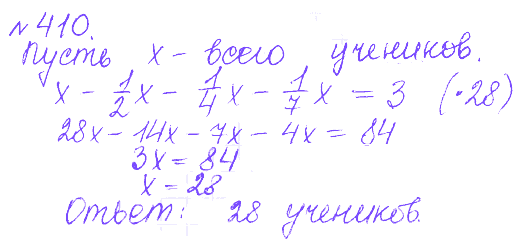 № 410.
Пусть x - всего учеников.
x - 1/2 x - 1/4 x - 1/7 x = 3 (·28)
28x - 14x - 7x - 4x = 84
3x = 84
x = 28
Ответ: 28 учеников.